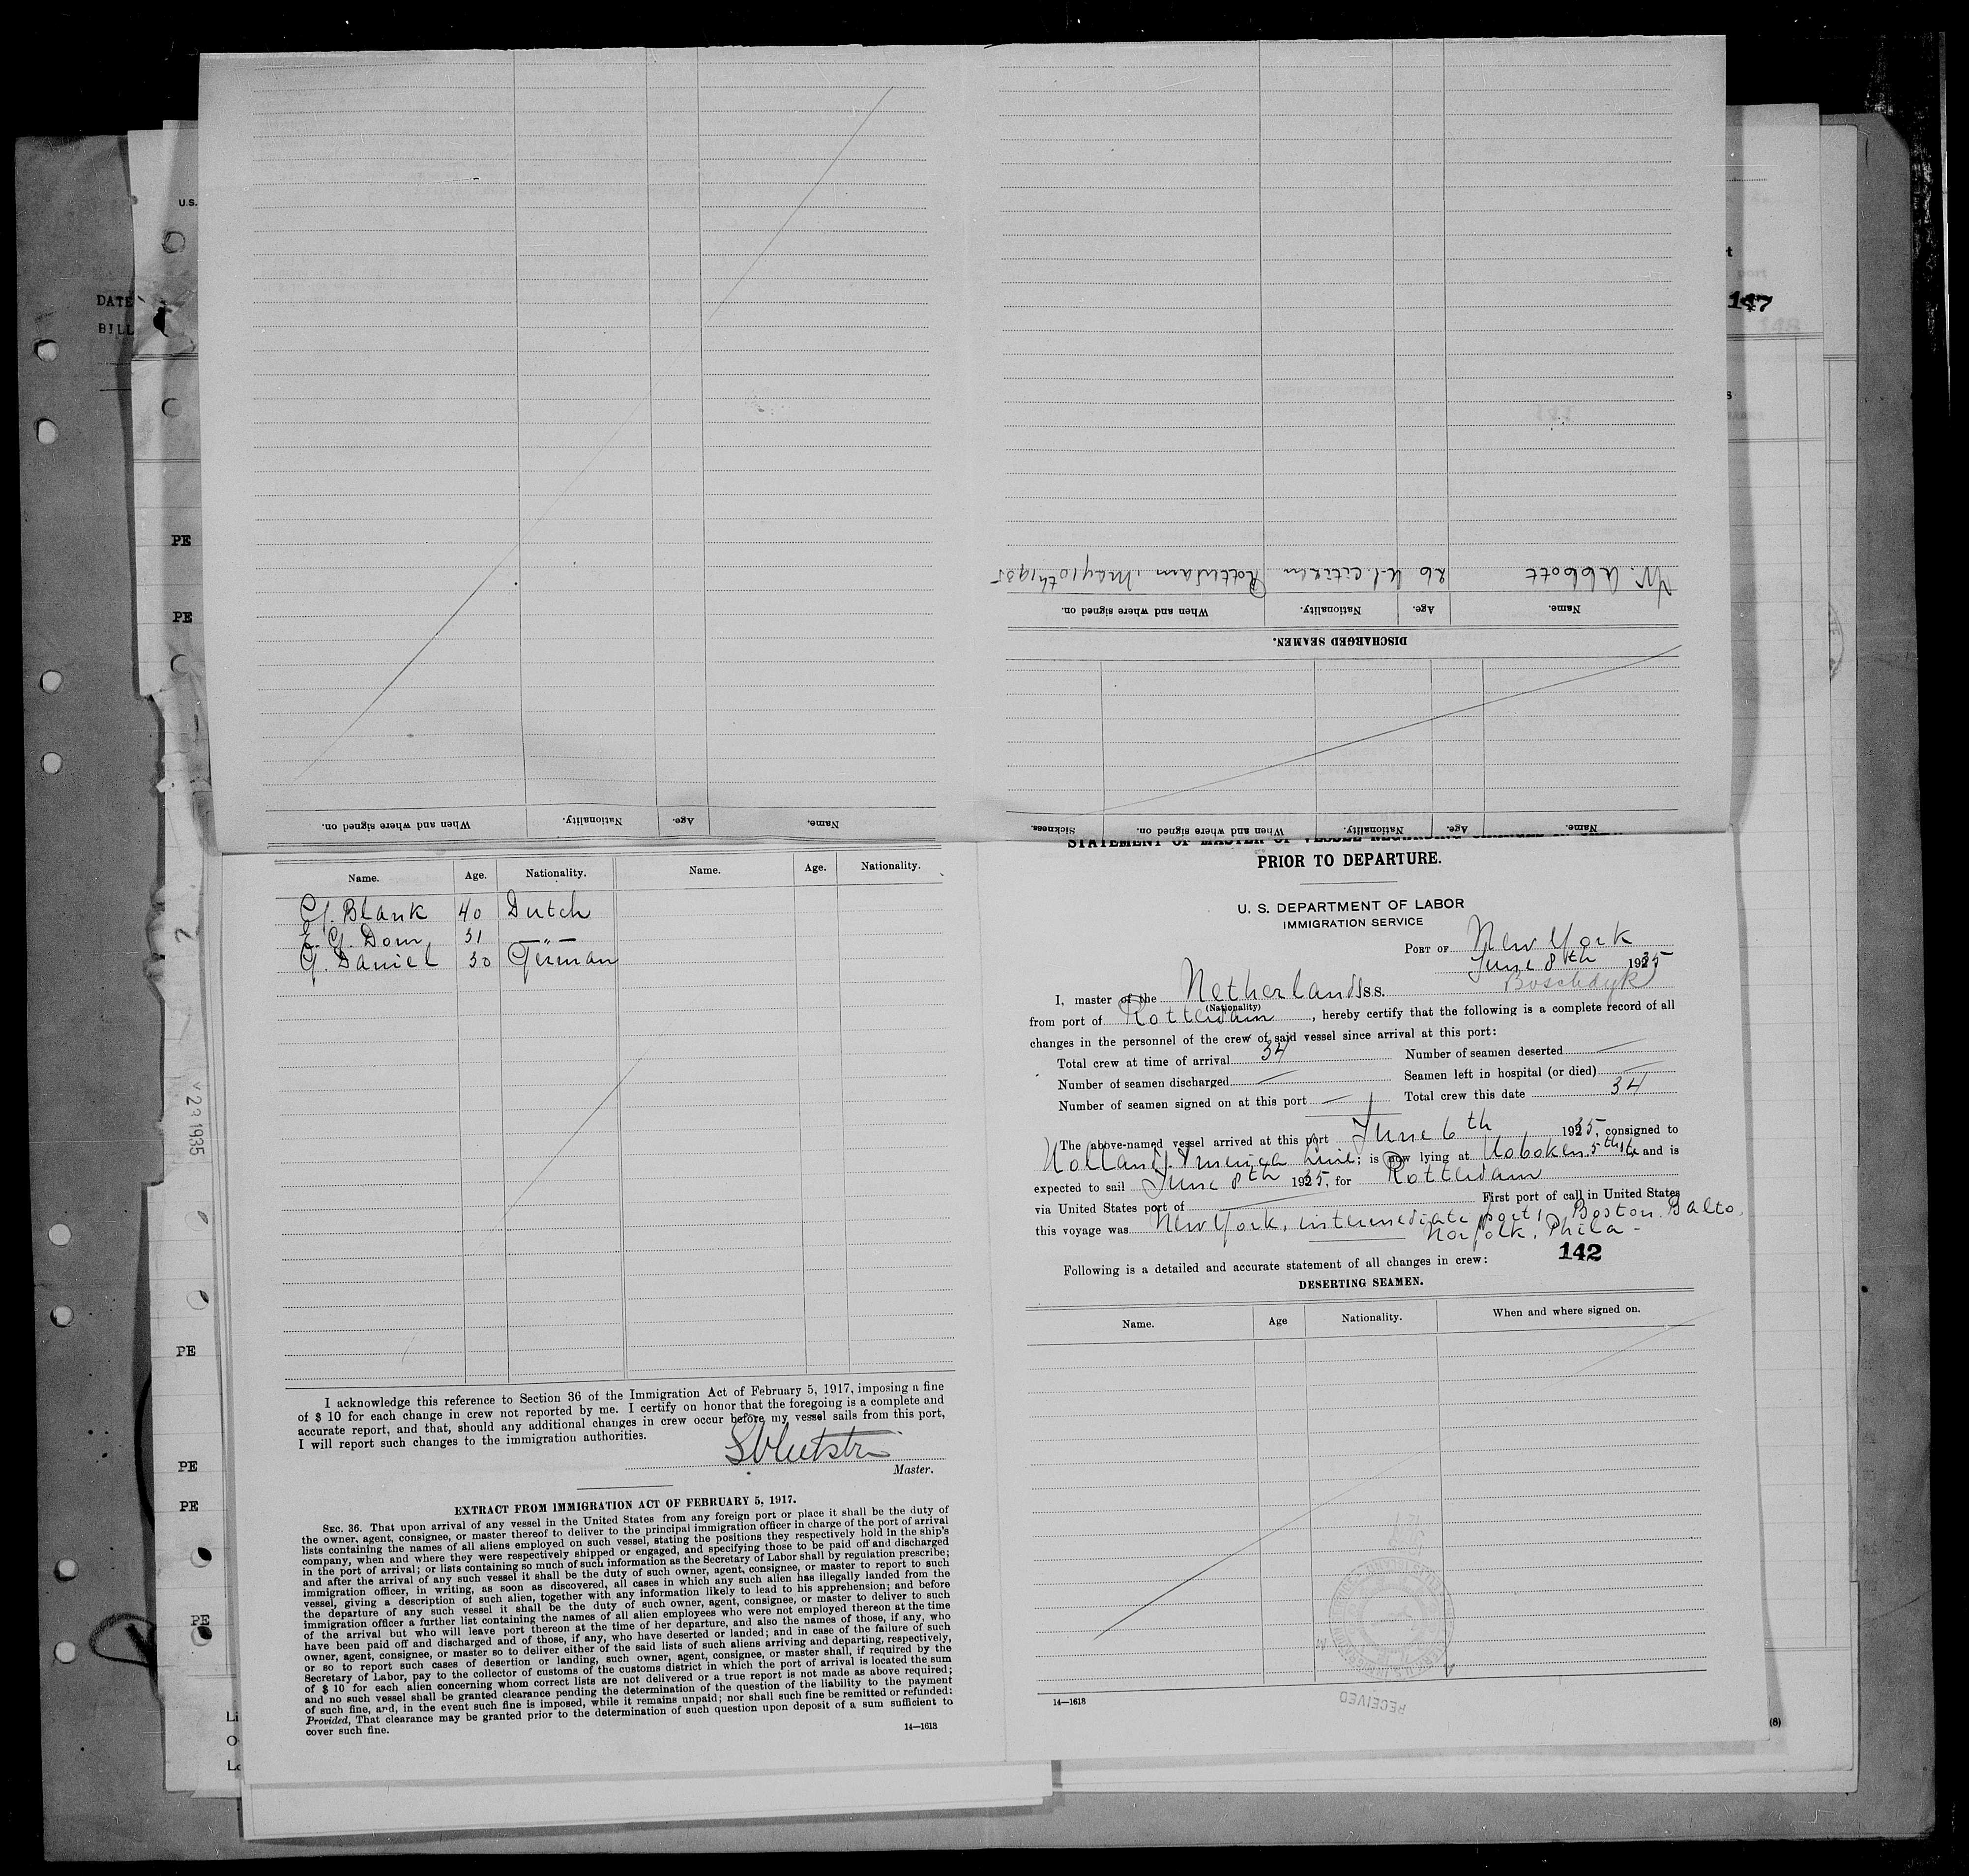 U.S.
DATE
BILL
PE
PE
V 23 1935
PE
PE
PE
PE
147
Name. Age. Nationality. When and where signed on.
Sickness. When and where signed on. Nationality. Age. Name.
DISCHARGED SEAMEN.
Name. Age. Nationality. When and where signed on.
W. Abbott 26 U.S. citizen Rotterdam, May 10th 1935
Name. Age. Nationality. Name. Age. Nationality.
Blank 40 Dutch
31 —"—
G. Daniel 30 German
I acknowledge this reference to Section 36 of the Immigration Act of February 5, 1917, imposing a fine
of $ 10 for each change in crew not reported by me. I certify on honor that the foregoing is a complete and
accurate report, and that, should any additional changes in crew occur before my vessel sails from this port,
I will report such changes to the immigration authorities.
Master.
EXTRACT FROM IMMIGRATION ACT OF FEBRUARY 5, 1917.
SEC. 36. That upon arrival of any vessel in the United States from any foreign port or place it shall be the duty of
the owner, agent, consignee, or master thereof to deliver to the principal immigration officer in charge of the port of arrival
lists containing the names of all aliens employed on such vessel, stating the positions they respectively hold in the ship's
company, when and where they were respectively shipped or engaged, and specifying those to be paid off and discharged
in the port of arrival; or lists containing so much of such information as the Secretary of Labor shall by regulation prescribe;
and after the arrival of any such vessel it shall be the duty of such owner, agent, consignee, or master to report to such
immigration officer, in writing, as soon as discovered, all cases in which any such alien has illegally landed from the
vessel, giving a description of such alien, together with any information likely to lead to his apprehension; and before
the departure of any such vessel it shall be the duty of such owner, agent, consignee, or master to deliver to such
immigration officer a further list containing the names of all alien employees who were not employed thereon at the time
of the arrival but who will leave port thereon at the time of her departure, and also the names of those, if any, who
have been paid off and discharged and of those, if any, who have deserted or landed; and in case of the failure of such
owner, agent, consignee, or master so to deliver either of the said lists of such aliens arriving and departing, respectively,
or so to report such cases of desertion or landing, such owner, agent, consignee, or master shall, if required by the
Secretary of Labor, pay to the collector of customs of the customs district in which the port of arrival is located the sum
of $ 10 for each alien concerning whom correct lists are not delivered or a true report is not made as above required;
and no such vessel shall be granted clearance pending the determination of the question of the liability to the payment
of such fine, and, in the event such fine is imposed, while it remains unpaid; nor shall such fine be remitted or refunded:
Provided, That clearance may be granted prior to the determination of such question upon deposit of a sum sufficient to
cover such fine.
14—1618
STATEMENT OF MASTER OF VESSEL REGARDING CHANGES IN CREW
PRIOR TO DEPARTURE.
U. S. DEPARTMENT OF LABOR
IMMIGRATION SERVICE
PORT OF New York
June 8th 1935
I, master of the Netherlands SS. Boschdyk
(Nationality)
from port of Rotterdam, hereby certify that the following is a complete record of all
changes in the personnel of the crew of said vessel since arrival at this port:
Total crew at time of arrival 34 Number of seamen deserted —
Number of seamen discharged — Seamen left in hospital (or died) —
Number of seamen signed on at this port — Total crew this date 34
The above-named vessel arrived at this port June 6th 1935, consigned to
Holland America Line; is now lying at Hoboken 5th St. and is
expected to sail June 8th 1935, for Rotterdam
via United States port of — First port of call in United States
this voyage was New York, intermediate ports, Boston. Balto.
Norfolk. Phila -
142
Following is a detailed and accurate statement of all changes in crew:
DESERTING SEAMEN.
Name. Age Nationality. When and where signed on.
RECEIVED
14—1618
(8)